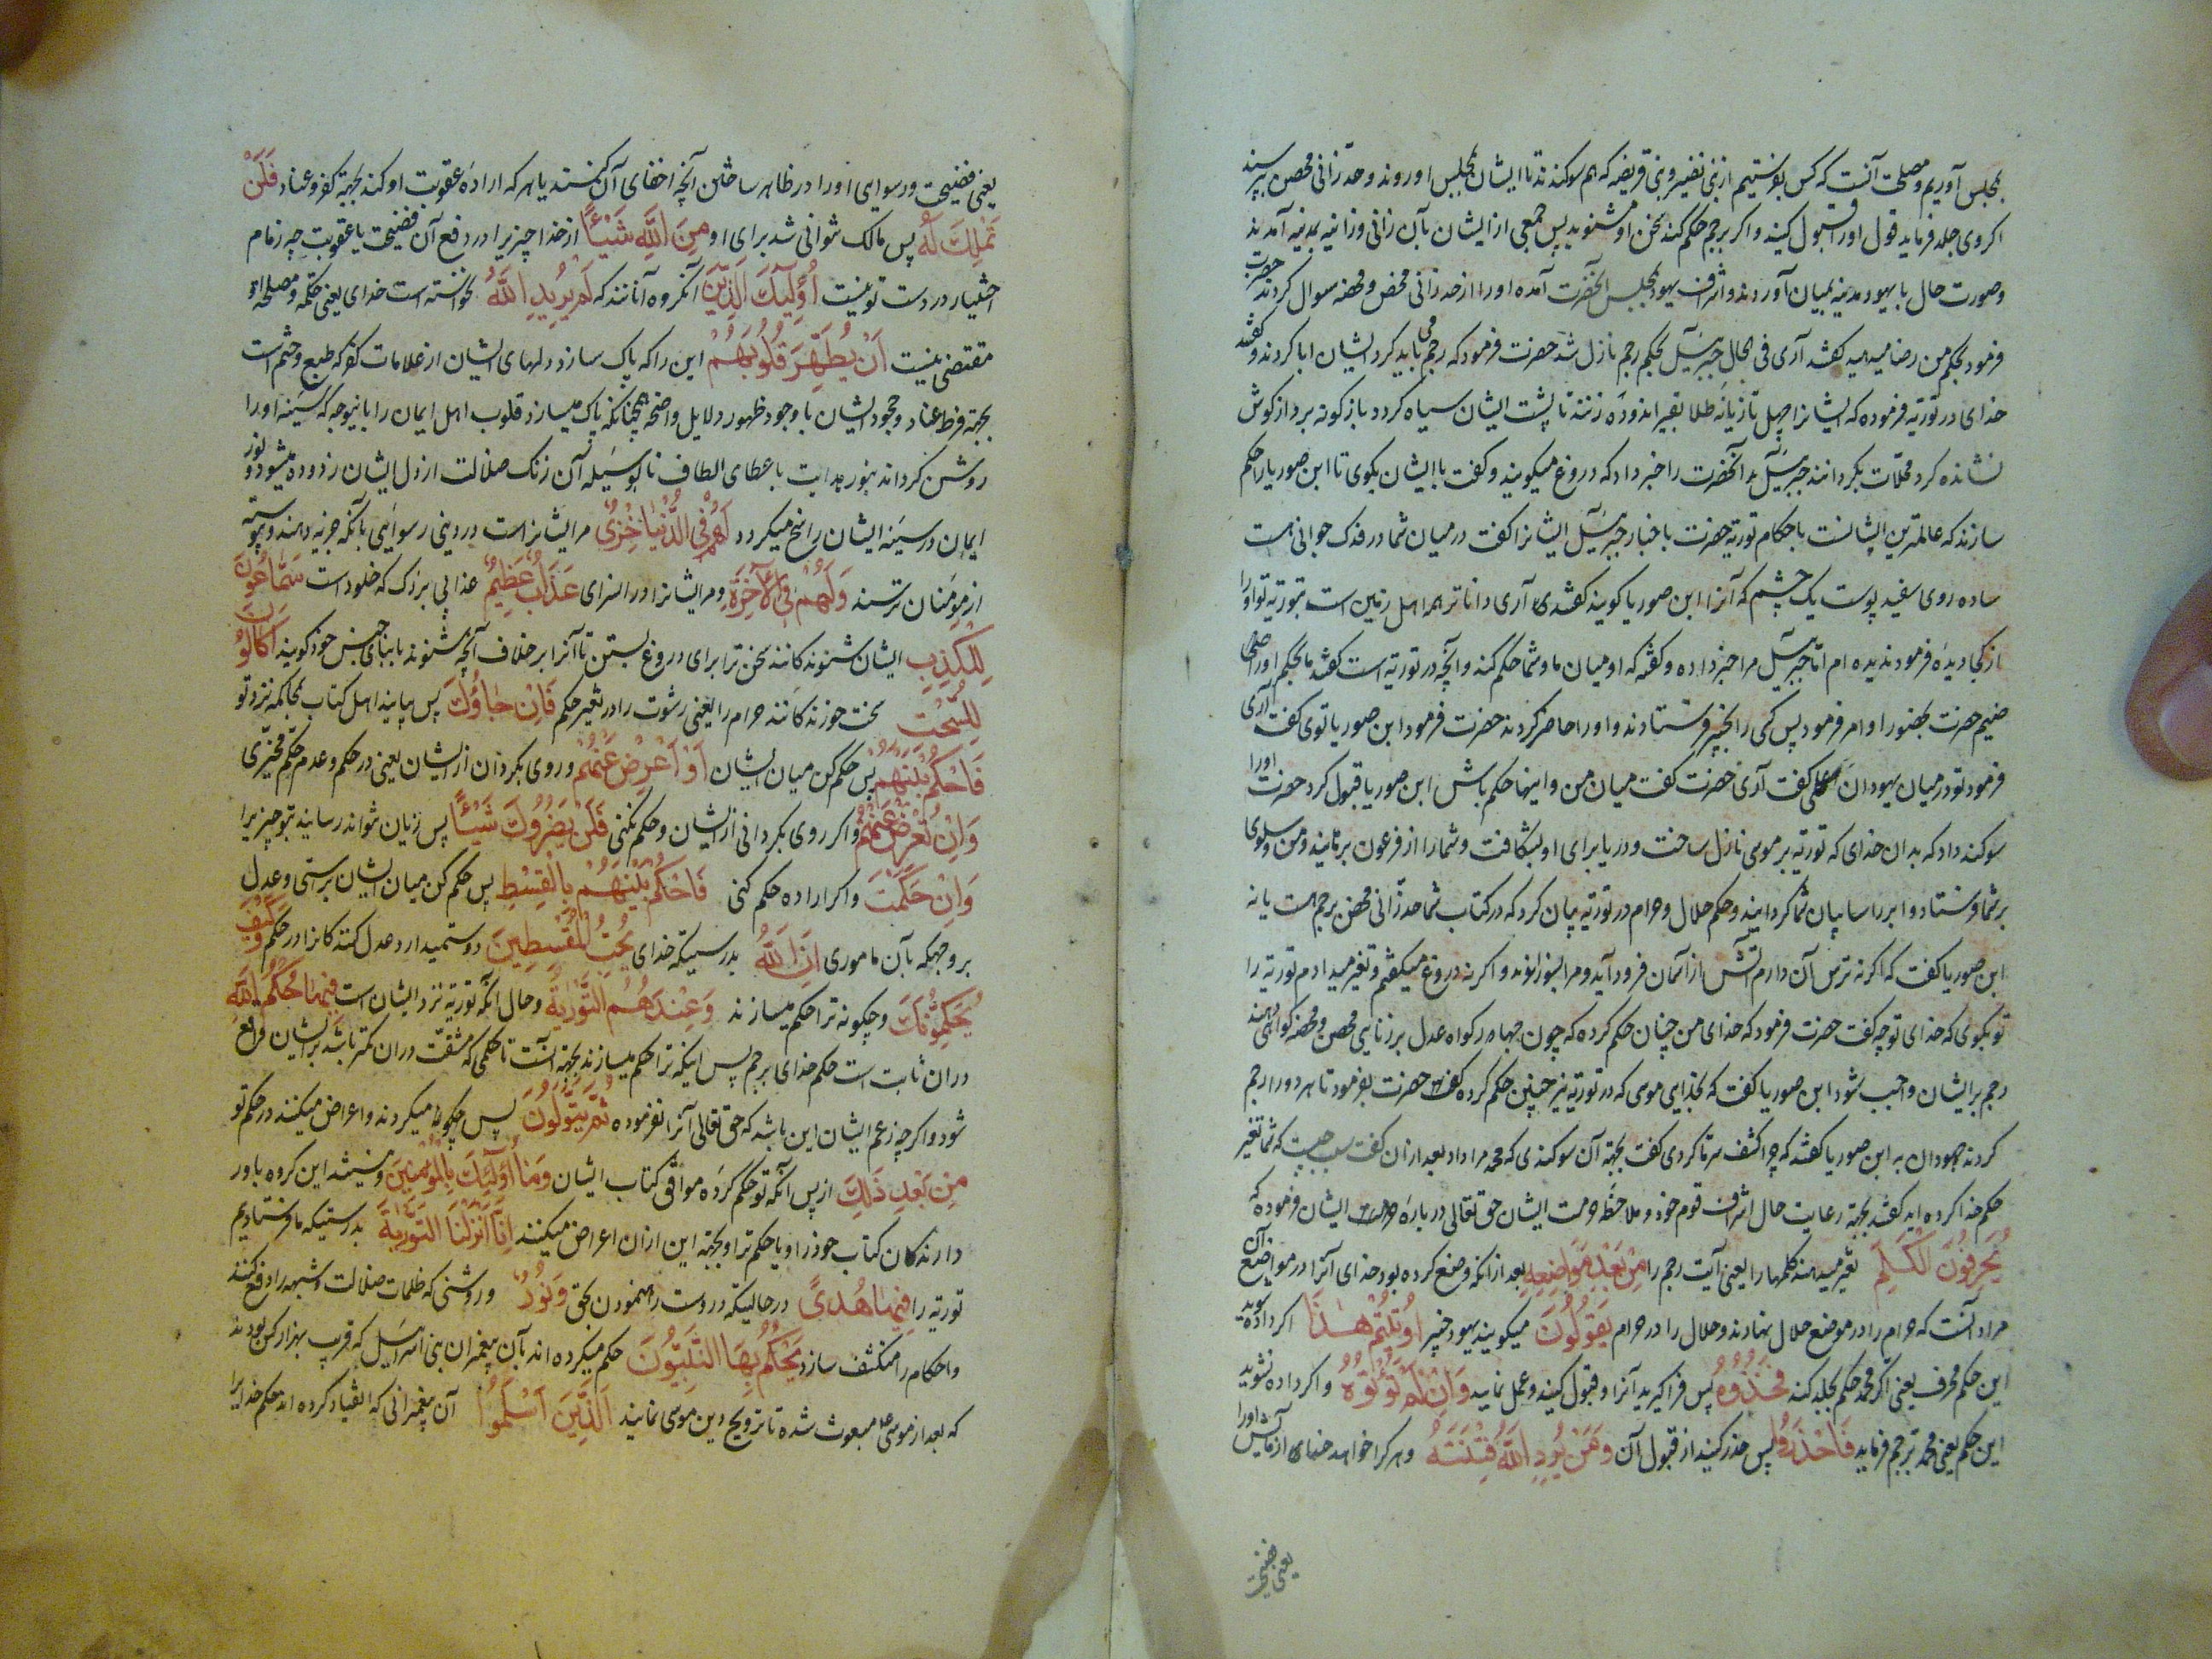 بمجلس آوریم و مصلحت آنست که کس بفرستیم از بنی نضیر و بنی قریضه که هم سوکند ند تا ایشان بمجلس او روند و حد زانی محصن بپرسند
اکر وی جلد فرماید قول او را قبول کنید و اکر برجم حکم کند سخن او مشنوید پس جمعی از ایشان بآن زانی و زانیه بمدینه آمدند
و صورت حال با یهود مدینه بمیان آوردند و اشراف یهود بمجلس آنحضرت آمده او را از حد زانی محصن و محصنه سوال کردند حضرت
فرمود بحکم من رضا میدهید کفتند آری فی الحال جبرئیل بحکم رجم نازل شد حضرت فرمود که رجم می باید کرد ایشان ابا کردند و کفتند
خدای در توریة فرموده که ایشانرا چهل تازیانه طلا بقیر اندوده زنند تا پشت ایشان سیاه کردد باز کونه بر دراز کوش
نشانده کرد محلات بکردانند جبرئیل آنحضرت را خبر داد که دروغ میکویند و کفت با ایشان بکوی تا ابن صوریا را حکم
سازند که عالمترین ایشانست باحکام توریة حضرت باخبار جبرئیل ایشانرا کفت در میان شما در فدک جوانی هست
ساده روی سفید پوست یک چشم که آنرا ابن صوریا کویند کفتند آری داناترا هل زمین است بتوریة تو او را
از کجا دیدهٔ فرمود ندیده ام اما جبرئیل مرا خبر داده و کفته که او میان ما و شما حکم کند و آنچه در توریة است کفتند ما بحکم او راضی
ضیم حضرت بحضور او امر فرمود پس کسی را بخیبر فرستادند و او را حاضر کردند حضرت فرمود ابن صوریا توی کفت آری
فرمود تو در میان یهودان اعلمی کفت آری حضرت کفت میان من و اینها حکم باش ابن صوریا قبول کرد حضرت او را
سوکند داد که بدان خدای که توریة بر موسی نازل ساخت و دریا برای او بشکافت و شما را از فرعون برهانید و من و سلوی
بر شما فرستاد و ابر را سایبان شما کردانید و حکم حلال و حرام در توریة بیان کرد که در کتاب شما حد زانی محصن برجم هست یا نه
ابن صوریا کفت که اکر نه ترس آن دارم آتش از آسمان فرود آید و مرا بسوزاند و اکر نه دروغ میکفتم و تغیر میدادم توریة را
تو بکوی که خدای تو چه کفت حضرت فرمود که خدای من چنان حکم کرده که چون چهار کواه عدل بر زنای محصن و محصنه کواهی دهند
رجم بر ایشان واجب شود ابن صوریا کفت که بخدای موسی که در توریة نیز چنین حکم کرده حضرت بفرمود تا هر دو را رجم
کردند جهودان به ابن صوریا کفتند که چرا کشف سر ما کردی کفت بجهة آن سوکندی که محمد مرا داد بعد از آن کفت سبب چیست که شما تغیر
حکم خدا کرده اید کفتند بجهة رعایت حال اشراف قوم خود و ملاحظه حرمت ایشان حق تعالی درباره ایشان فرموده که
يُحَرِّفُونَ الْكَلِمَ تغیر میدهند کلمها را یعنی آیت رجم را مِنْ بَعْدِ مَوَاضِعِهِ بعد از آنکه وضع کرده بود خدای آنرا در مواضع آن
مراد آنست که حرام را در موضع حلال نهادند و حلال را در حرام يَقُولُونَ میکویند یهود خیبر اُوتِيتُمْ هٰذَا اکر داده شوید
این حکم محرف یعنی اکر محمد حکم بجلد کند فَخُذُوهُ پس فرا کیرید آنرا و قبول کنید و عمل نمایید وَاِنْ لَمْ تُؤْتَوْهُ و اکر داده نشوید
این حکم یعنی محمد برجم فرماید فَاحْذَرُوا پس حذر کنید از قبول آن وَمَنْ يُرِدِ اللّٰهُ فِتْنَتَهُ و هر کرا خواهد خدای آزمایش او را
یعنی فضیحت
یعنی فضیحت و رسوایی او را در ظاهر ساختن آنچه اخفای آن کنند یا هر که ارادهٔ عقوبت او کند بجهة کفر و عناد فَلَنْ
تَمْلِكَ لَهُ پس مالک نتوانی شد برای او مِنَ اللّٰهِ شَيْـًٔا از خدا چیزی را در دفع آن فضیحت یا عقوبت چه زمام
اختیار در دست تو نیست اُولٰٓئِكَ الَّذِينَ آنکروه آنانند که لَمْ يُرِدِ اللّٰهُ نخواسته است خدای یعنی حکمة و مصلحة او
مقتضی نیست اَنْ يُطَهِّرَ قُلُوبَهُمْ این را که پاک سازد دلهای ایشان از علامات کفر که طبع و ختم است
بجهة فرط عناد و جحود ایشان با وجود ظهور دلایل واضحه همچنانکه پاک میسازد قلوب اهل ایمان را باینوجه که سینه او را
روشن کرداند بنور هدایت باعطای الطاف تا بوسیله آن زنک ضلالت از دل ایشان زدوده میشود و نور
ایمان در سینه ایشان راسخ میکردد لَهُمْ فِي الدُّنْيَا خِزْيٌ مر ایشانراست در دینی رسوایی بآنکه جزیه دهند و پیوسته
از مؤمنان ترسند وَلَهُمْ فِي الْاٰخِرَةِ و مر ایشانرا در آنسرای عَذَابٌ عَظِيمٌ عذابی بزرک که خلود است سَمَّاعُونَ
لِلْكَذِبِ ایشان شنوندکانند سخن ترا برای دروغ بستن تا آنرا بر خلاف آنچه شنوند با بنای جنس خود کویند اَكَّالُونَ
لِلسُّحْتِ سخت خورندکانند حرام را یعنی رشوت را در تغیر حکم فَاِنْ جَاؤُكَ پس بیایند اهل کتاب بمحاکمه نزد تو
فَاحْكُمْ بَيْنَهُمْ پس حکم کن میان ایشان اَوْ اَعْرِضْ عَنْهُمْ و روی بکردان از ایشان یعنی در حکم و عدم حکم مخیری
وَاِنْ تُعْرِضْ عَنْهُمْ و اکر روی بکردانی از ایشان و حکم نکنی فَلَنْ يَضُرُّوكَ شَيْـًٔا پس زیان نتوانند رسانید بتو چیزی را
وَاِنْ حَكَمْتَ و اکر اراده حکم کنی فَاحْكُمْ بَيْنَهُمْ بِالْقِسْطِ پس حکم کن میان ایشان براستی و عدل
بر وجهیکه بآن ماموری اِنَّ اللّٰهَ بدرستیکه خدای يُحِبُّ الْمُقْسِطِينَ دوستمیدارد عدل کنندکانرا در حکم وَكَيْفَ
يُحَكِّمُونَكَ و چکونه ترا حکم میسازند وَعِنْدَهُمُ التَّوْرٰيةُ و حال آنکه توریة نزد ایشان است فِيهَا حُكْمُ اللّٰهِ
در آن ثابت است حکم خدای برجم پس اینکه ترا حکم میسازند بجهة آنست تا حکمی که مشقت در آن کمتر باشد بر ایشان واقع
شود و اکر چه زعم ایشان این باشد که حق تعالی آنرا نفرموده ثُمَّ يَتَوَلَّوْنَ پس چکونه میکردند و اعراض میکنند در حکم تو
مِنْ بَعْدِ ذٰلِكَ از پس آنکه تو حکم کردهٔ موافق کتاب ایشان وَمَا اُولٰٓئِكَ بِالْمُؤْمِنِينَ و نیستند این کروه باور
دارندکان کتاب خود را و یا حکم ترا و بجهة این از آن اعراض میکنند اِنَّا اَنْزَلْنَا التَّوْرٰيةَ بدرستیکه ما فرستادیم
توریة را فِيهَا هُدًى در حالیکه دروست راه نمودن بحق وَنُورٌ و روشنی که ظلمات ضلالت و شبهه را دفع کند
و احکام را منکشف سازد يَحْكُمُ بِهَا النَّبِيُّونَ حکم میکرده اند بآن پیغمبران بنی اسرائیل که قریب بهزار کس بودند
که بعد از موسی مبعوث شده تا ترویج دین موسی نمایند اَلَّذِينَ اَسْلَمُوا آن پیغمبرانی که انقیاد کرده اند حکم خدا را